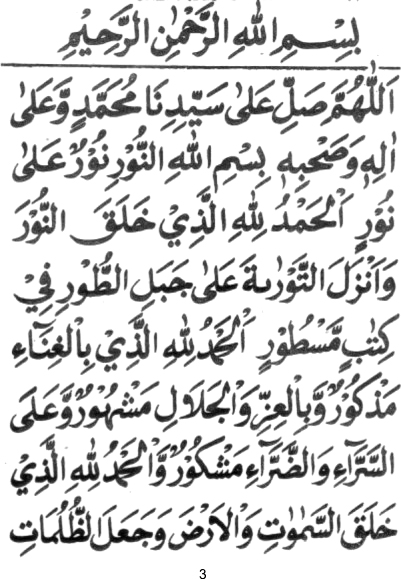 بِسْمِ اللهِ الرَّحْمٰنِ الرَّحِيْمِ
اَللّٰهُمَّ صَلِّ عَلٰى سَيِّدِنَا مُحَمَّدٍ وَّعَلٰى
اٰلِهٖ وَصَحْبِهٖ بِسْمِ اللهِ النُّوْرِ نُوْرٌ عَلٰى
نُوْرٍ اَلْحَمْدُ لِلّٰهِ الَّذِيْ خَلَقَ النُّوْرَ
وَاَنْزَلَ التَّوْرٰىةَ عَلٰى جَبَلِ الطُّوْرِ فِيْ
كِتٰبٍ مَّسْطُوْرٍ اَلْحَمْدُ لِلّٰهِ الَّذِيْ بِالْغِنَآءِ
مَذْكُوْرٌ وَّبِالْعِزِّ وَالْجَلَالِ مَشْهُوْرٌ وَّعَلَى
السَّرَّآءِ وَالضَّرَّآءِ مَشْكُوْرٌ وَّالْحَمْدُ لِلّٰهِ الَّذِيْ
خَلَقَ السَّمٰوٰتِ وَالْاَرْضَ وَجَعَلَ الظُّلُمَاتِ
3